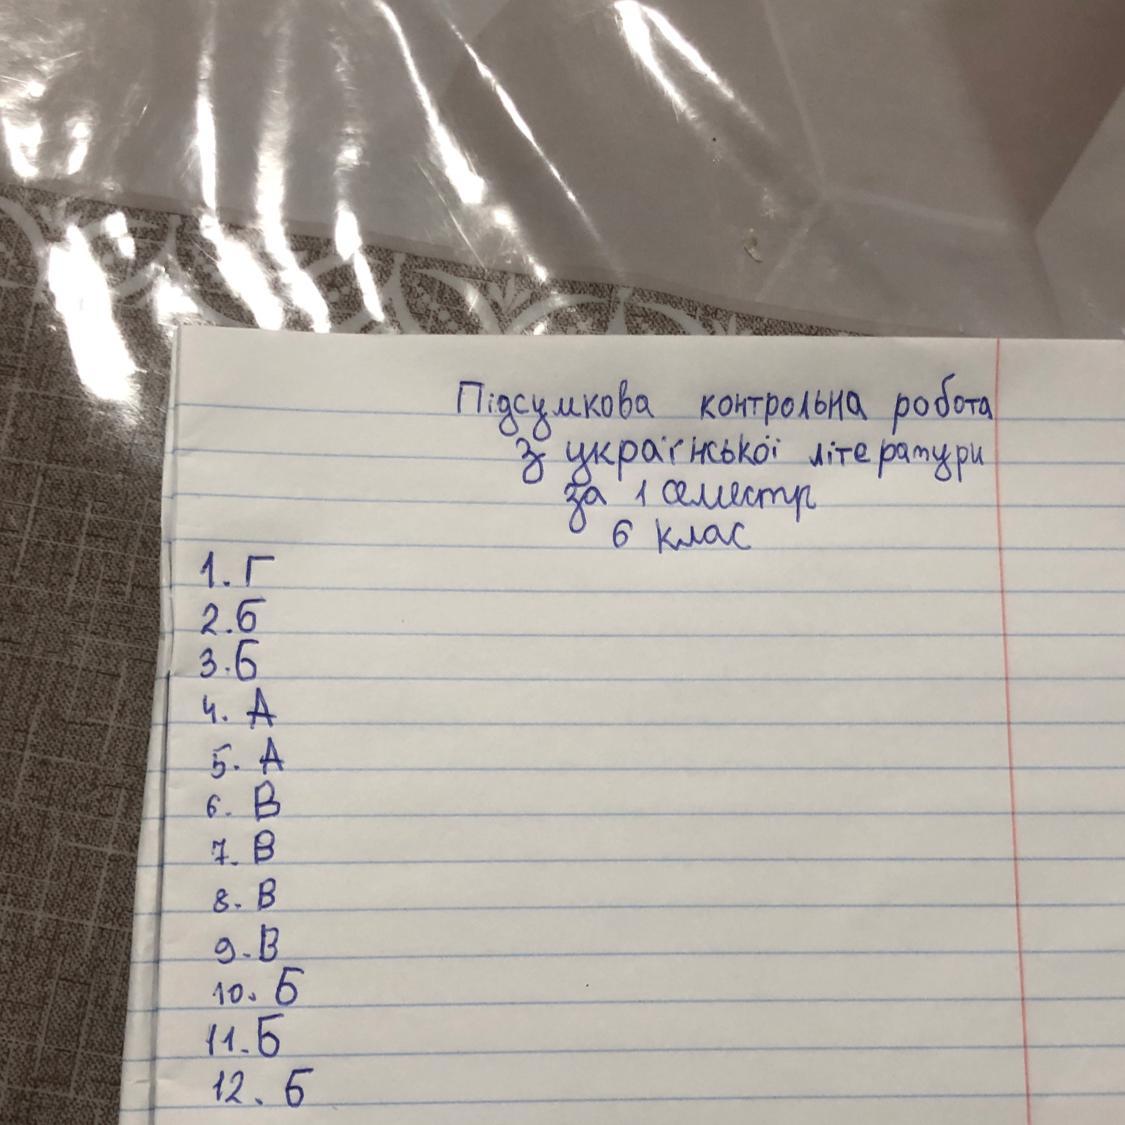 Підсумкова контрольна робота
з української літератури
за 1 семестр
6 клас
1. Г
2. Б
3. Б
4. А
5. А
6. В
7. В
8. В
9. В
10. Б
11. Б
12. Б